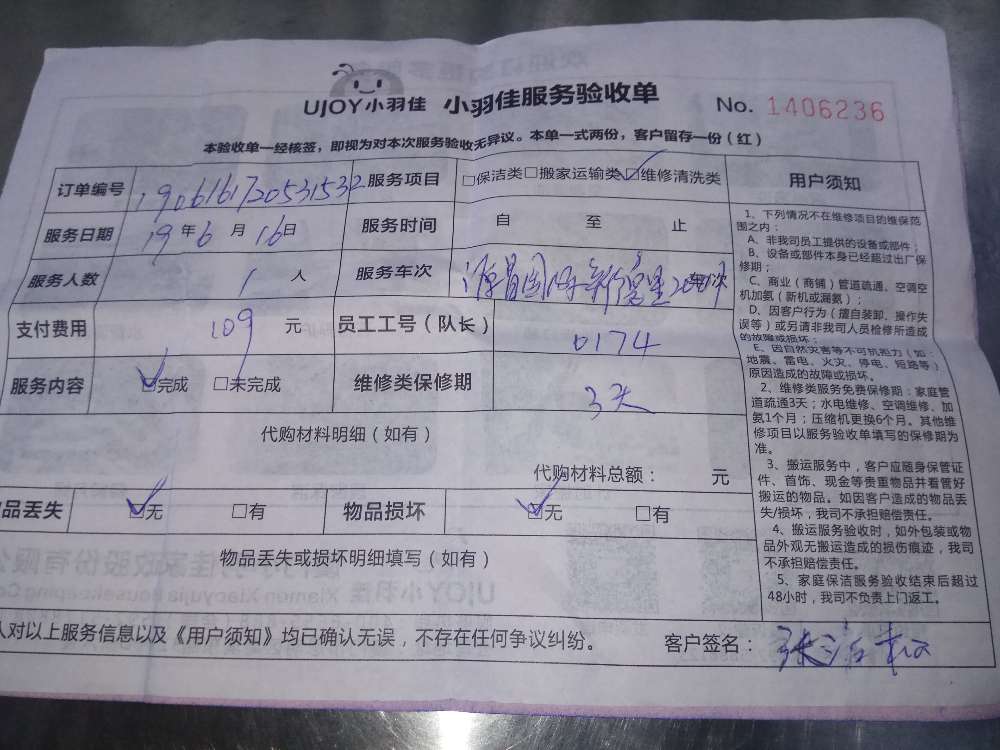 UJOY小羽佳 小羽佳服务验收单 No. 1406236
本验收单一经核签，即视为对本次服务验收无异议。本单一式两份，客户留存一份（红）
订单编号 1906161720531532 服务项目 □保洁类□搬家运输类☑维修清洗类
服务日期 19年6月16日 服务时间 自 至 止
服务人数 1 人 服务车次 车次
支付费用 109 元 员工工号（队长） 0174
服务内容 ☑完成 □未完成 维修类保修期 3天
代购材料明细（如有）
代购材料总额： 元
品丢失 ☑无 □有 物品损坏 ☑无 □有
物品丢失或损坏明细填写（如有）
人对以上服务信息以及《用户须知》均已确认无误，不存在任何争议纠纷。
客户签名：
用户须知
1、下列情况不在维修项目的维保范
围之内：
A、非我司员工提供的设备或部件；
B、设备或部件本身已经超过出厂保
修期；
C、商业（商铺）管道疏通、空调空
机加氨（新机或漏氨）；
D、因客户行为（擅自装卸、操作失
误等）或另请非我司人员检修所造成
的故障或损坏；
E、因自然灾害等不可抗拒力（如：
地震、雷电、火灾、停电、短路等）
原因造成的故障或损坏。
2、维修类服务免费保修期：家庭管
道疏通3天；水电维修、空调维修、加
氨1个月；压缩机更换6个月。其他维
修项目以服务验收单填写的保修期为
准。
3、搬运服务中，客户应随身保管证
件、首饰、现金等贵重物品并看管好
搬运的物品。如因客户造成的物品丢
失/损坏，我司不承担赔偿责任。
4、搬运服务验收时，如外包装或物
品外观无搬运造成的损伤痕迹，我司
不承担赔偿责任。
5、家庭保洁服务验收结束后超过
48小时，我司不负责上门返工。